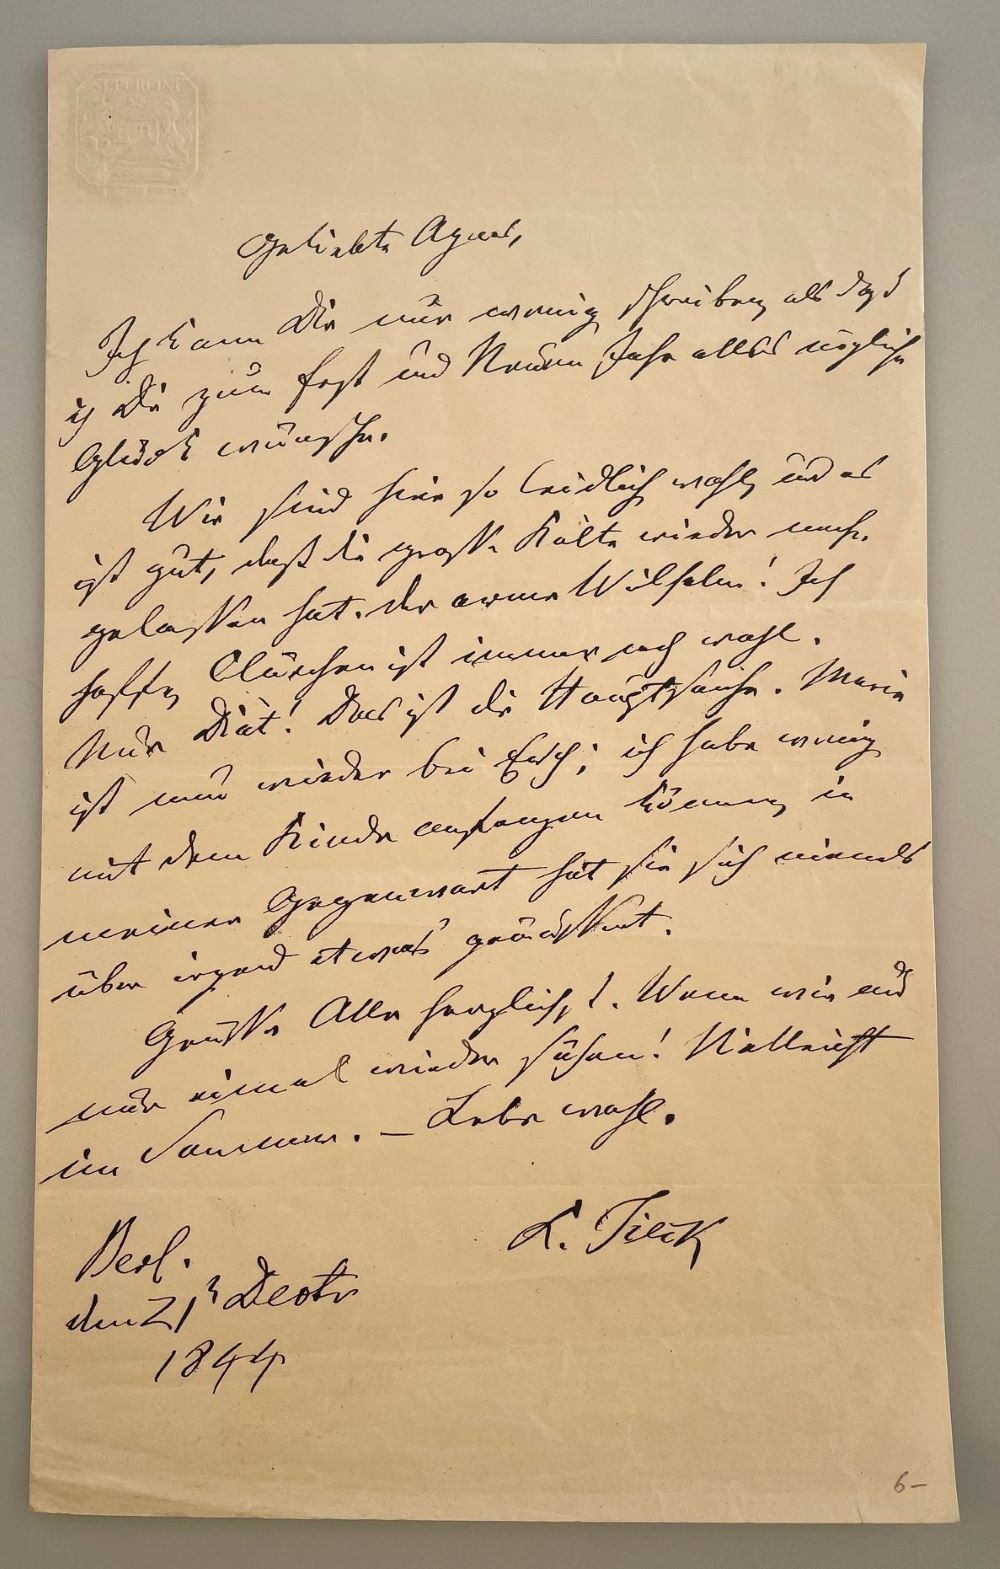 SUPERFINE
Geliebte Agnes,
Ich kann Dir nur wenig schreiben als daß
ich Dir zum Fest und Neuen Jahr alles mögliche
Glück wünsche.
Wir sind hier so leidlich wohl, und es
ist gut, daß die große Kälte wieder nach-
gelassen hat. der arme Wilhelm! Ich
hoffe, Clärchen ist immer noch wohl.
Nur Diät! Das ist die Hauptsache. Marie
ist nun wieder bei Euch; ich habe wenig
mit dem Kinde anfangen können, in
meiner Gegenwart hat sie sich niemals
über irgend etwas geäussert.
Grüsse Alle herzlichst. Wenn wir uns
nur einmal wieder sähen! Vielleicht
im Sommer. – Lebe wohl.
L. Tieck
Berl.
den 21t Decbr
1844
6–